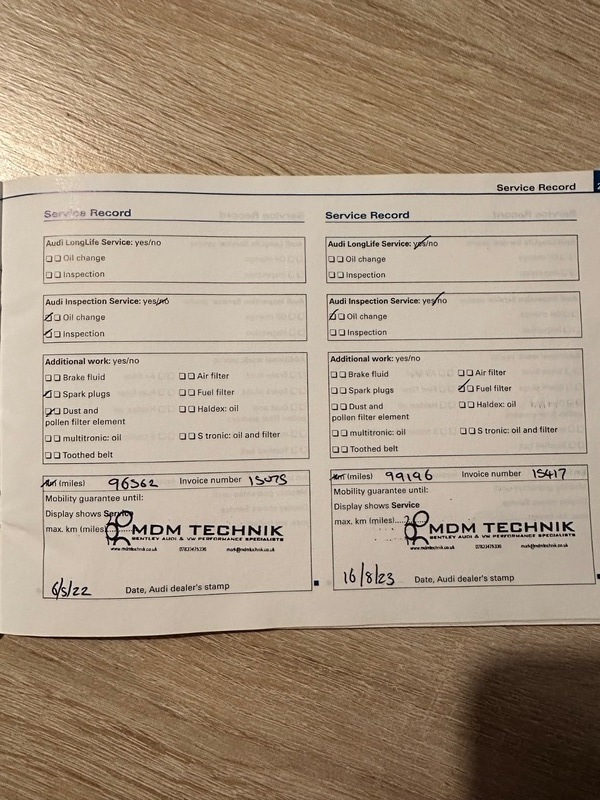 Service Record
2
Service Record
Audi LongLife Service: yes/no
Oil change
Inspection
Audi Inspection Service: yes/no
Oil change
Inspection
Additional work: yes/no
Brake fluid
Air filter
Spark plugs
Fuel filter
Dust and
pollen filter element
Haldex: oil
multitronic: oil
S tronic: oil and filter
Toothed belt
km (miles) 96562 Invoice number 15075
Mobility guarantee until:
Display shows Service
max. km (miles)
MDM TECHNIK
BENTLEY AUDI & VW PERFORMANCE SPECIALISTS
www.mdmtechnik.co.uk mark@mdmtechnik.co.uk
6/5/22 Date, Audi dealer's stamp
Service Record
Audi LongLife Service: yes/no
Oil change
Inspection
Audi Inspection Service: yes/no
Oil change
Inspection
Additional work: yes/no
Brake fluid
Air filter
Spark plugs
Fuel filter
Dust and
pollen filter element
Haldex: oil
multitronic: oil
S tronic: oil and filter
Toothed belt
km (miles) 99196 Invoice number 15417
Mobility guarantee until:
Display shows Service
max. km (miles)
MDM TECHNIK
BENTLEY AUDI & VW PERFORMANCE SPECIALISTS
www.mdmtechnik.co.uk mark@mdmtechnik.co.uk
16/8/23 Date, Audi dealer's stamp